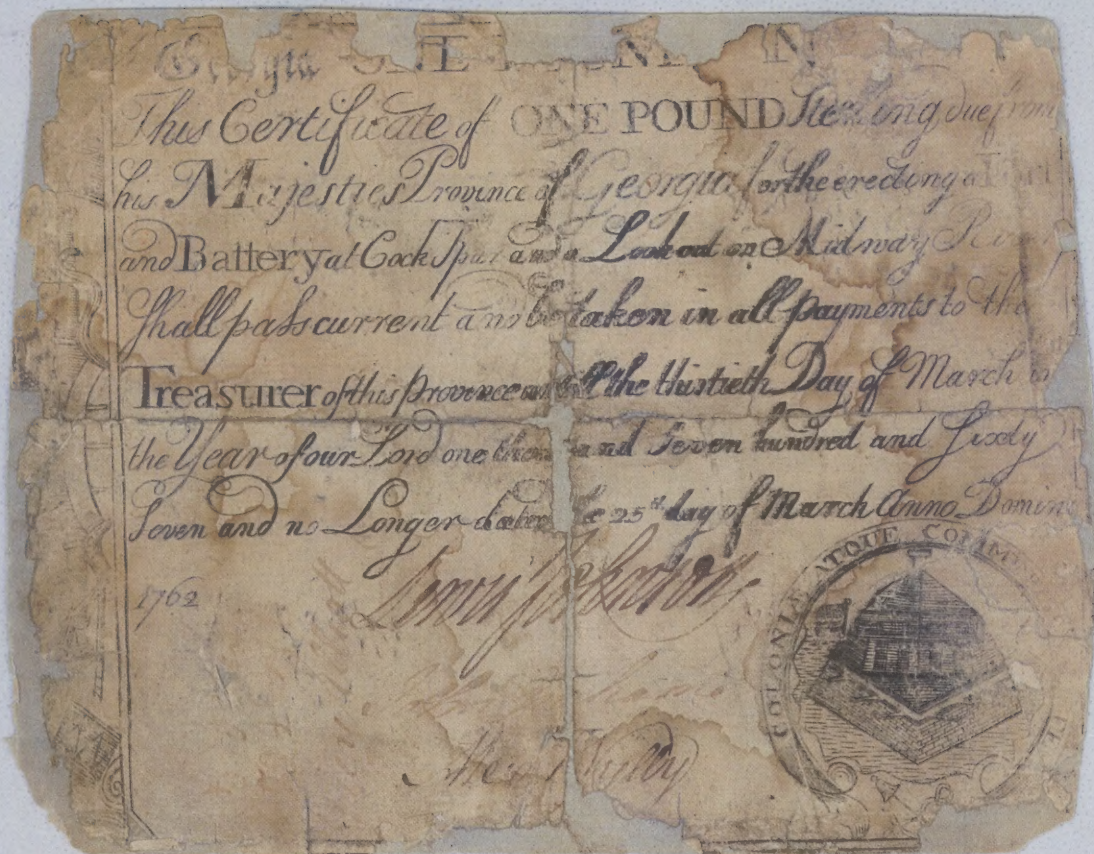 Georgia
This Certificate of ONE POUND Sterling due from
his Majesties Province of Georgia for the erecting a Fort
and Battery at Cock Spur and a Lookout on Midway River
Shall pass current and be taken in all payments to the
Treasurer of this Province until the thirtieth Day of March in
the Year of our Lord one thousand Seven hundred and Sixty
Seven and no Longer dated the 25th day of March Anno Domini
1762
Lewis Johnson
COLONIÆ ATQUE COMM